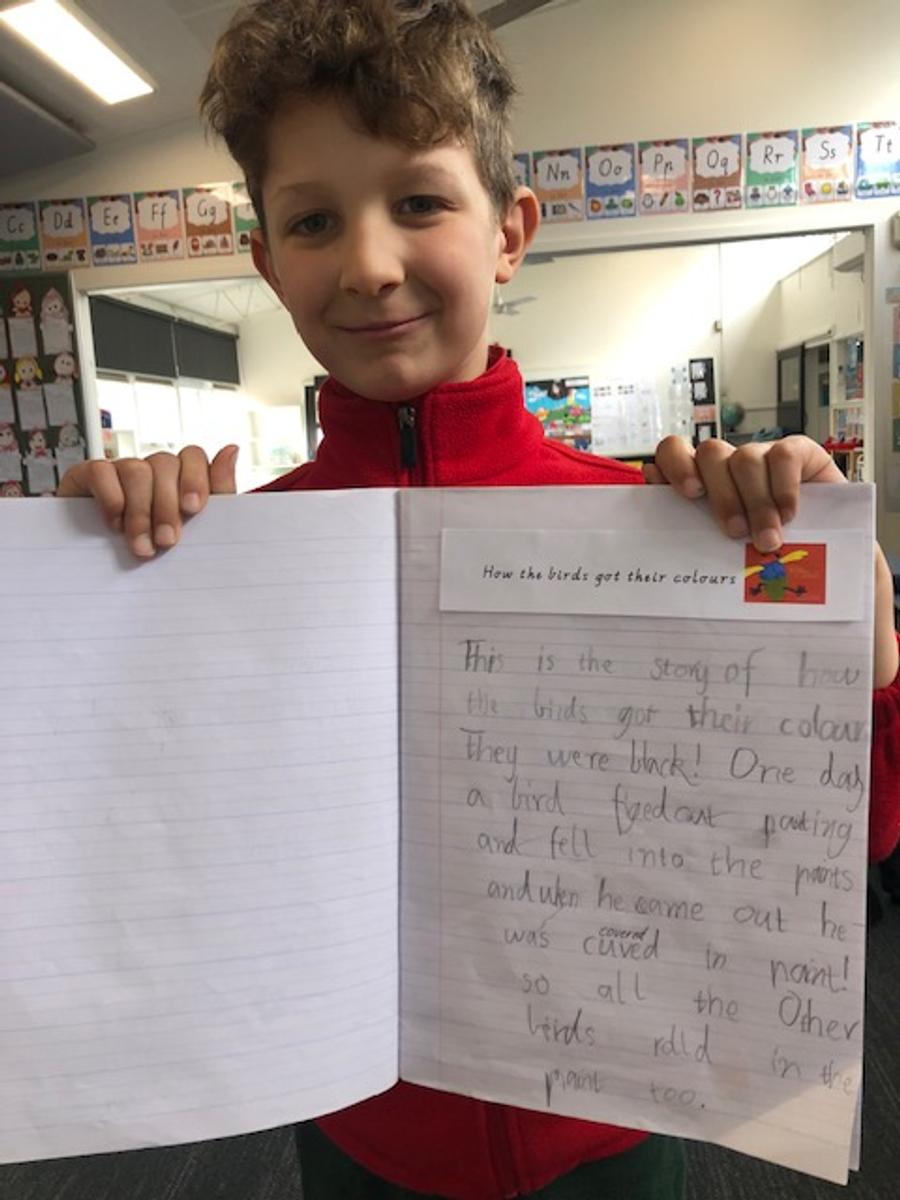 Cc Dd Ee Ff Gg
Nn Oo Pp Qq Rr Ss Tt
How the birds got their colours
This is the story of how
the birds got their colour
They were black! One day
a bird out
and fell into the paints
and when he came out he
covered
was cuved in paint!
so all the Other
birds rdld in the
paint too.